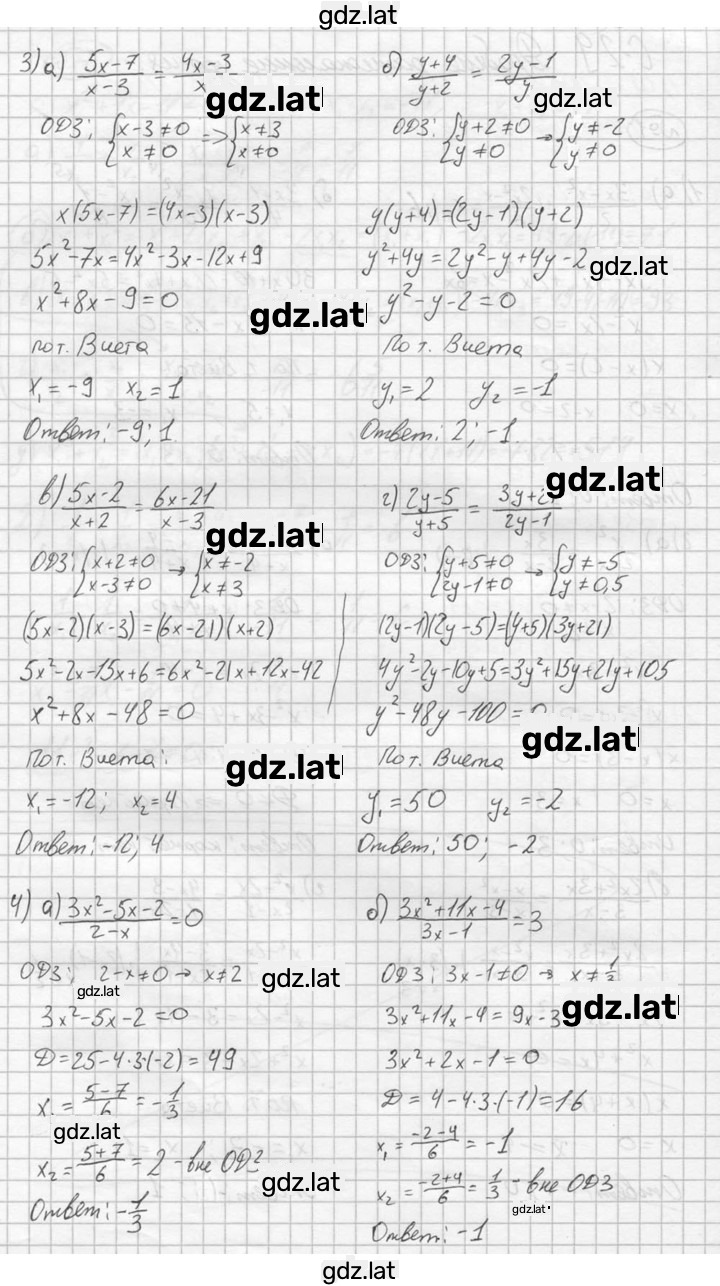 gdz.latl
3) а) (5x-7)/(x-3) = (4x-3)/x
gdz.latl
ОДЗ: {x-3≠0 => {x≠3
{x≠0 {x≠0
x(5x-7)=(4x-3)(x-3)
5x²-7x=4x²-3x-12x+9
x²+8x-9=0
gdz.latl
по т. Виета
x₁=-9 x₂=1
Ответ: -9; 1.
б) (y+4)/(y+2) = (2y-1)/y
gdz.latl
ОДЗ: {y+2≠0 → {y≠-2
{y≠0 {y≠0
y(y+4)=(2y-1)(y+2)
y²+4y=2y²-y+4y-2
gdz.latl
y²-y-2=0
По т. Виета
y₁=2 y₂=-1
Ответ: 2; -1.
в) (5x-2)/(x+2) = (6x-21)/(x-3)
gdz.latl
ОДЗ: {x+2≠0 → {x≠-2
{x-3≠0 {x≠3
(5x-2)(x-3)=(6x-21)(x+2)
5x²-2x-15x+6=6x²-21x+12x-42
x²+8x-48=0
По т. Виета:
gdz.latl
x₁=-12; x₂=4
Ответ: -12; 4
gdz.latl
г) (2y-5)/(y+5) = (3y+21)/(2y-1)
ОДЗ: {y+5≠0 → {y≠-5
{2y-1≠0 {y≠0,5
(2y-1)(2y-5)=(y+5)(3y+21)
4y²-2y-10y+5=3y²+15y+21y+105
y²-48y-100=0
gdz.latl
По т. Виета
y₁=50 y₂=-2
Ответ: 50; -2
4) а) (3x²-5x-2)/(2-x)=0
ОДЗ: 2-x≠0 → x≠2
gdz.latl
gdz.latl
3x²-5x-2=0
D=25-4·3·(-2)=49
x₁=(5-7)/6=-1/3
gdz.latl
x₂=(5+7)/6=2 - вне ОДЗ
gdz.latl
Ответ: -1/3
б) (3x²+11x-4)/(3x-1)=3
ОДЗ: 3x-1≠0 → x≠1/3
3x²+11x-4=9x-3
gdz.latl
3x²+2x-1=0
D=4-4·3·(-1)=16
x₁=(-2-4)/6=-1
x₂=(-2+4)/6=1/3 - вне ОДЗ
gdz.latl
Ответ: -1
gdz.latl